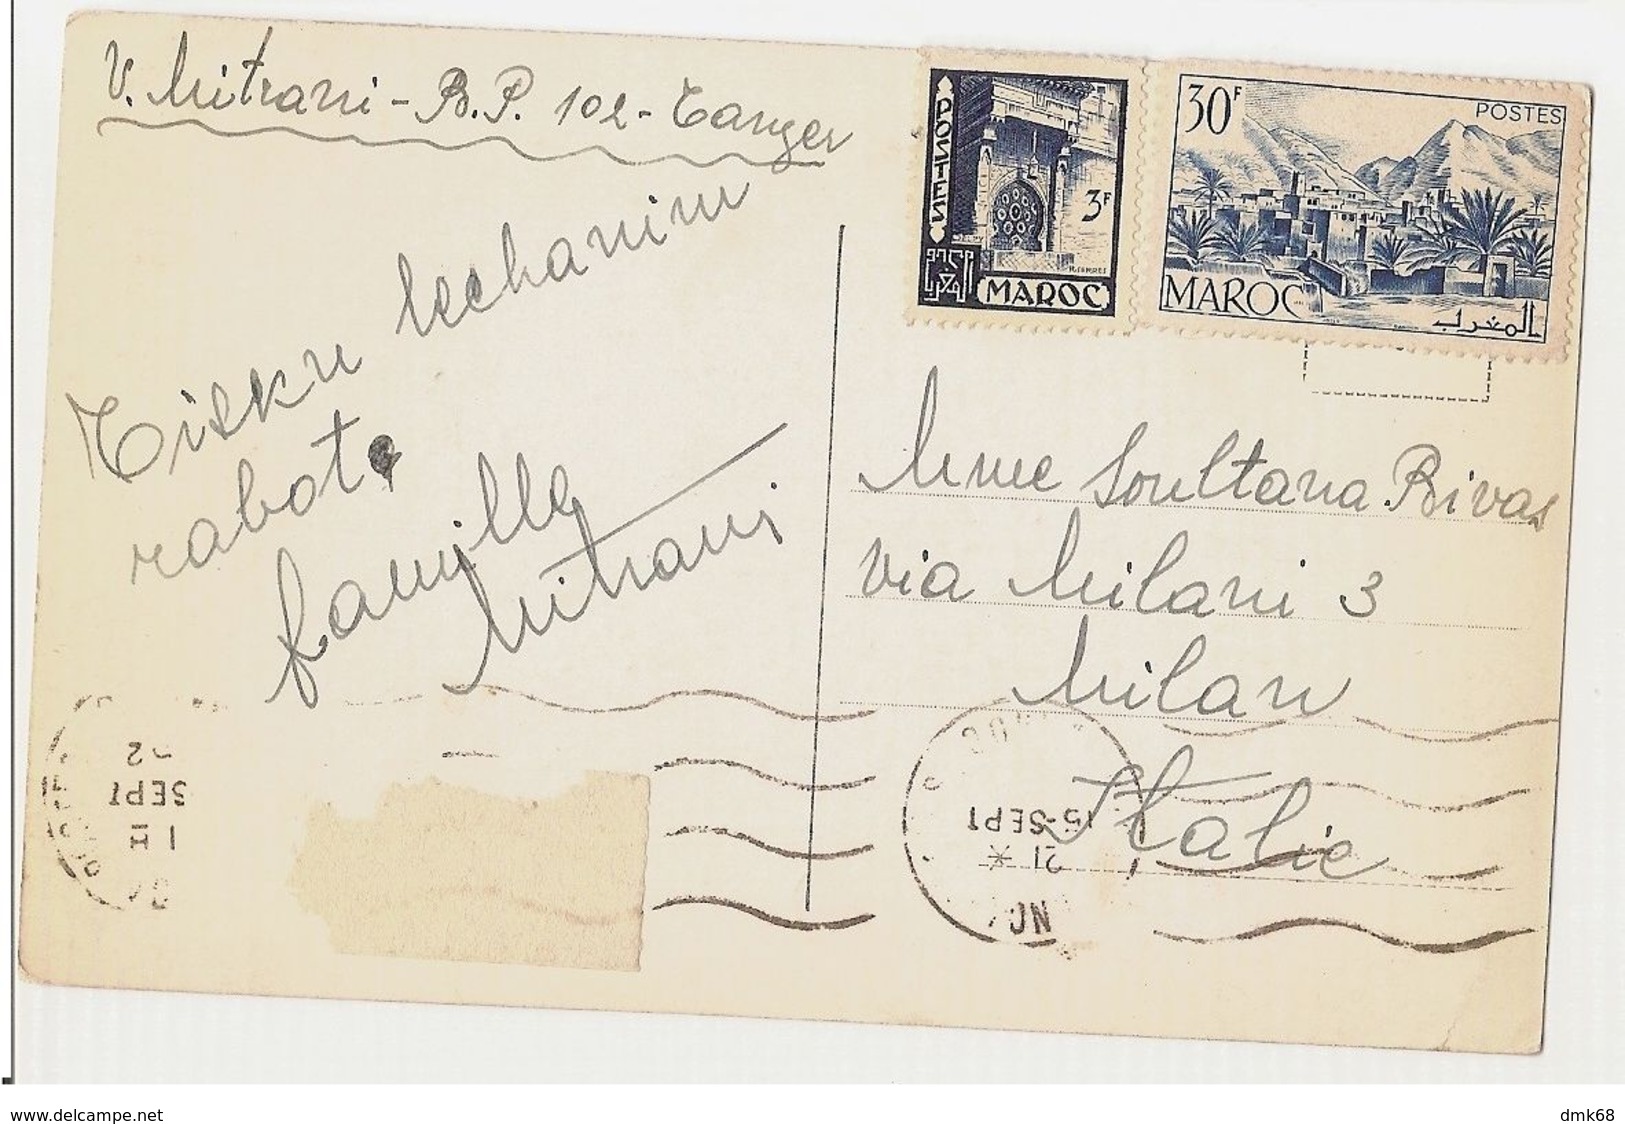 V. Mitrani - B.P. 102 - Tanger
Tisku lechanim
rabot
famille
Mitrani
POSTES
3F
MAROC
30F
POSTES
MAROC
المغرب
Mme Soultana Rivas
via Milani 3
Milan
Italie
SEPT
1H
15-SEPT
21 *
www.delcampe.net
dmk68